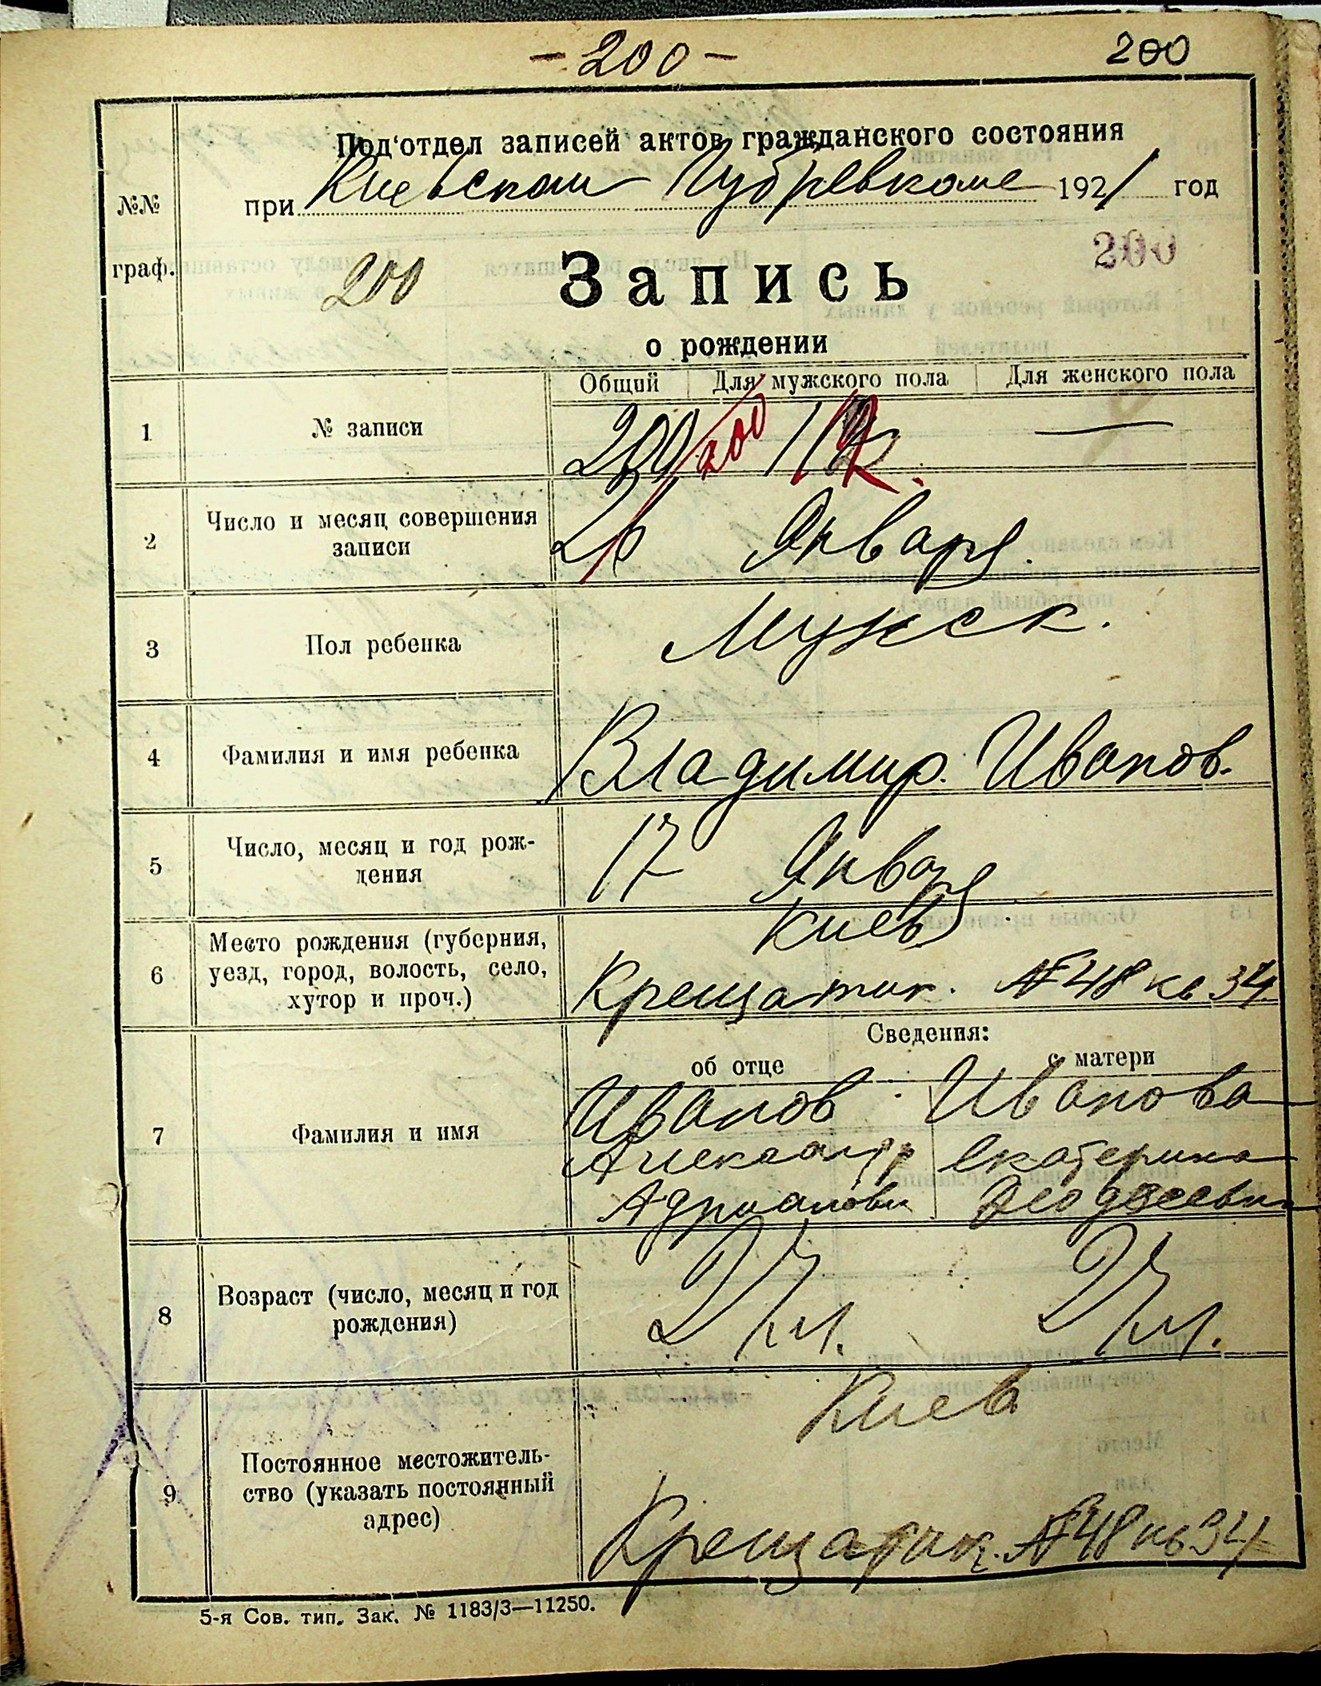 - 200 -
200
Под'отдел записей актов гражданского состояния
при Киевском Губревкоме 1921 год
№№
граф.
200
200
Запись
о рождении
Общий Для мужского пола Для женского пола
1 № записи 200 200 —
2 Число и месяц совершения записи 26 Января
3 Пол ребенка Мужск.
4 Фамилия и имя ребенка Владимир. Иванов.
5 Число, месяц и год рож-
дения 17 Января
6 Место рождения (губерния,
уезд, город, волость, село,
хутор и проч.)
Киев
Крещатик. №48 кв 34
Сведения:
об отце о матери
7 Фамилия и имя
Иванов Иванова
Александр Екатерина
8 Возраст (число, месяц и год
рождения)
Киев
9 Постоянное местожитель-
ство (указать постоянный
адрес)
Крещатик. №48 кв 34
5-я Сов. тип. Зак. № 1183/3—11250.